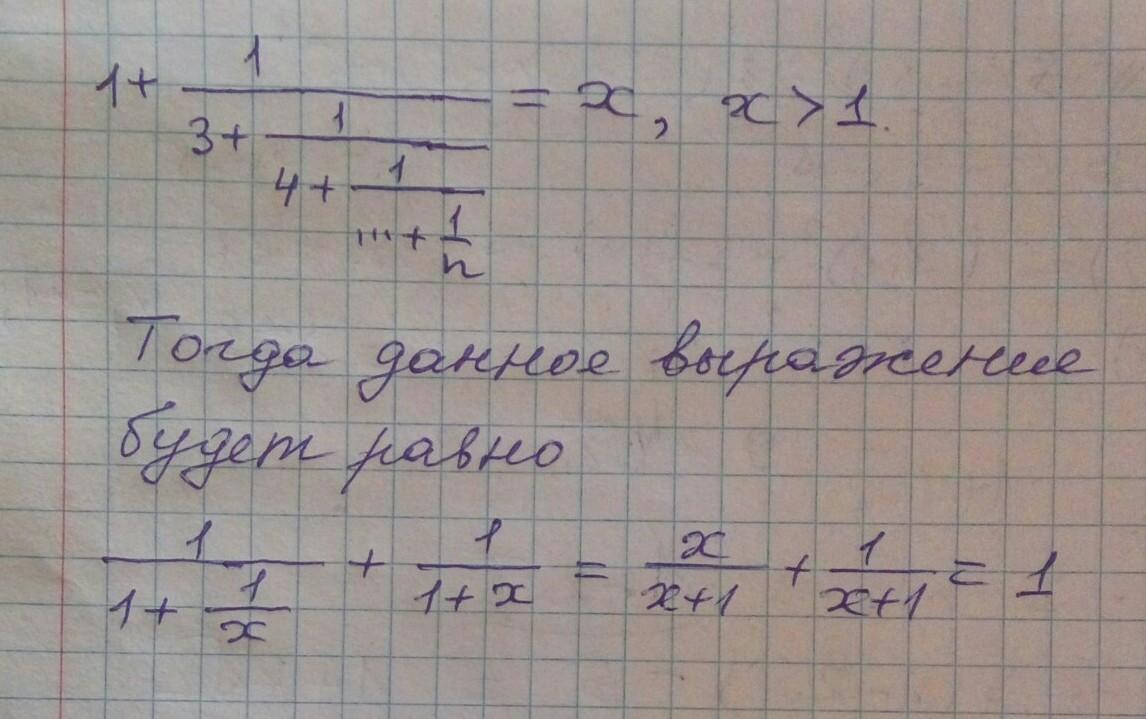 1 + 1/(3 + 1/(4 + 1/(... + 1/n))) = x, x > 1.
Тогда данное выражение
будет равно
1/(1 + 1/x) + 1/(1 + x) = x/(x+1) + 1/(x+1) = 1